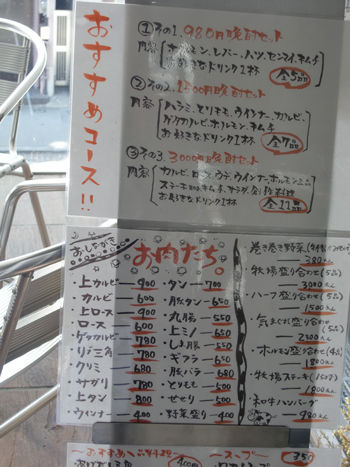 おすすめコース!!
①その1, 980円晩酌セット
内容 ホルモン、レバー、ハツ、センマイ、キムチ
お好きなドリンク1杯
全5品
②その2, 1500円晩酌セット
内容 ハラミ、とりモモ、ウインナー、カルビ、
ゲタカルビ、ホルモン、キムチ
お好きなドリンク1杯
全7品
③その3, 3000円晩酌セット
内容 カルビ、ロース、ウデ、ウインナー、ホルモン
キムチ、サラダ
お好きなドリンク1杯
全11品
おしながき
お肉たち。
・上カルビ―900
・カルビ―600
・上ロース―900
・ロース―600
・ゲタカルビ―780
・リブ三角―780
・クリミ―680
・サガリ―780
・上タン―800
・ウインナー―400
・タン―700
・豚タン―650
・丸腸―550
・上ミノ―650
・しま腸―550
・ギアラ―550
・豚バラ―680
・とりモモ―500
・せせり―500
・野菜盛り―400
巻き巻き野菜
―380
・牧場盛り合わせ(5品)
3000
・ハーフ盛り合わせ(5品)
1500
・気まぐれ盛り合わせ
2500
・ホルモン盛り合わせ(4品)
1800
・牧場ステーキ(150g)
1800
・和牛ハンバーグ
―980
〜おすすめ
400円
〜スープ
350